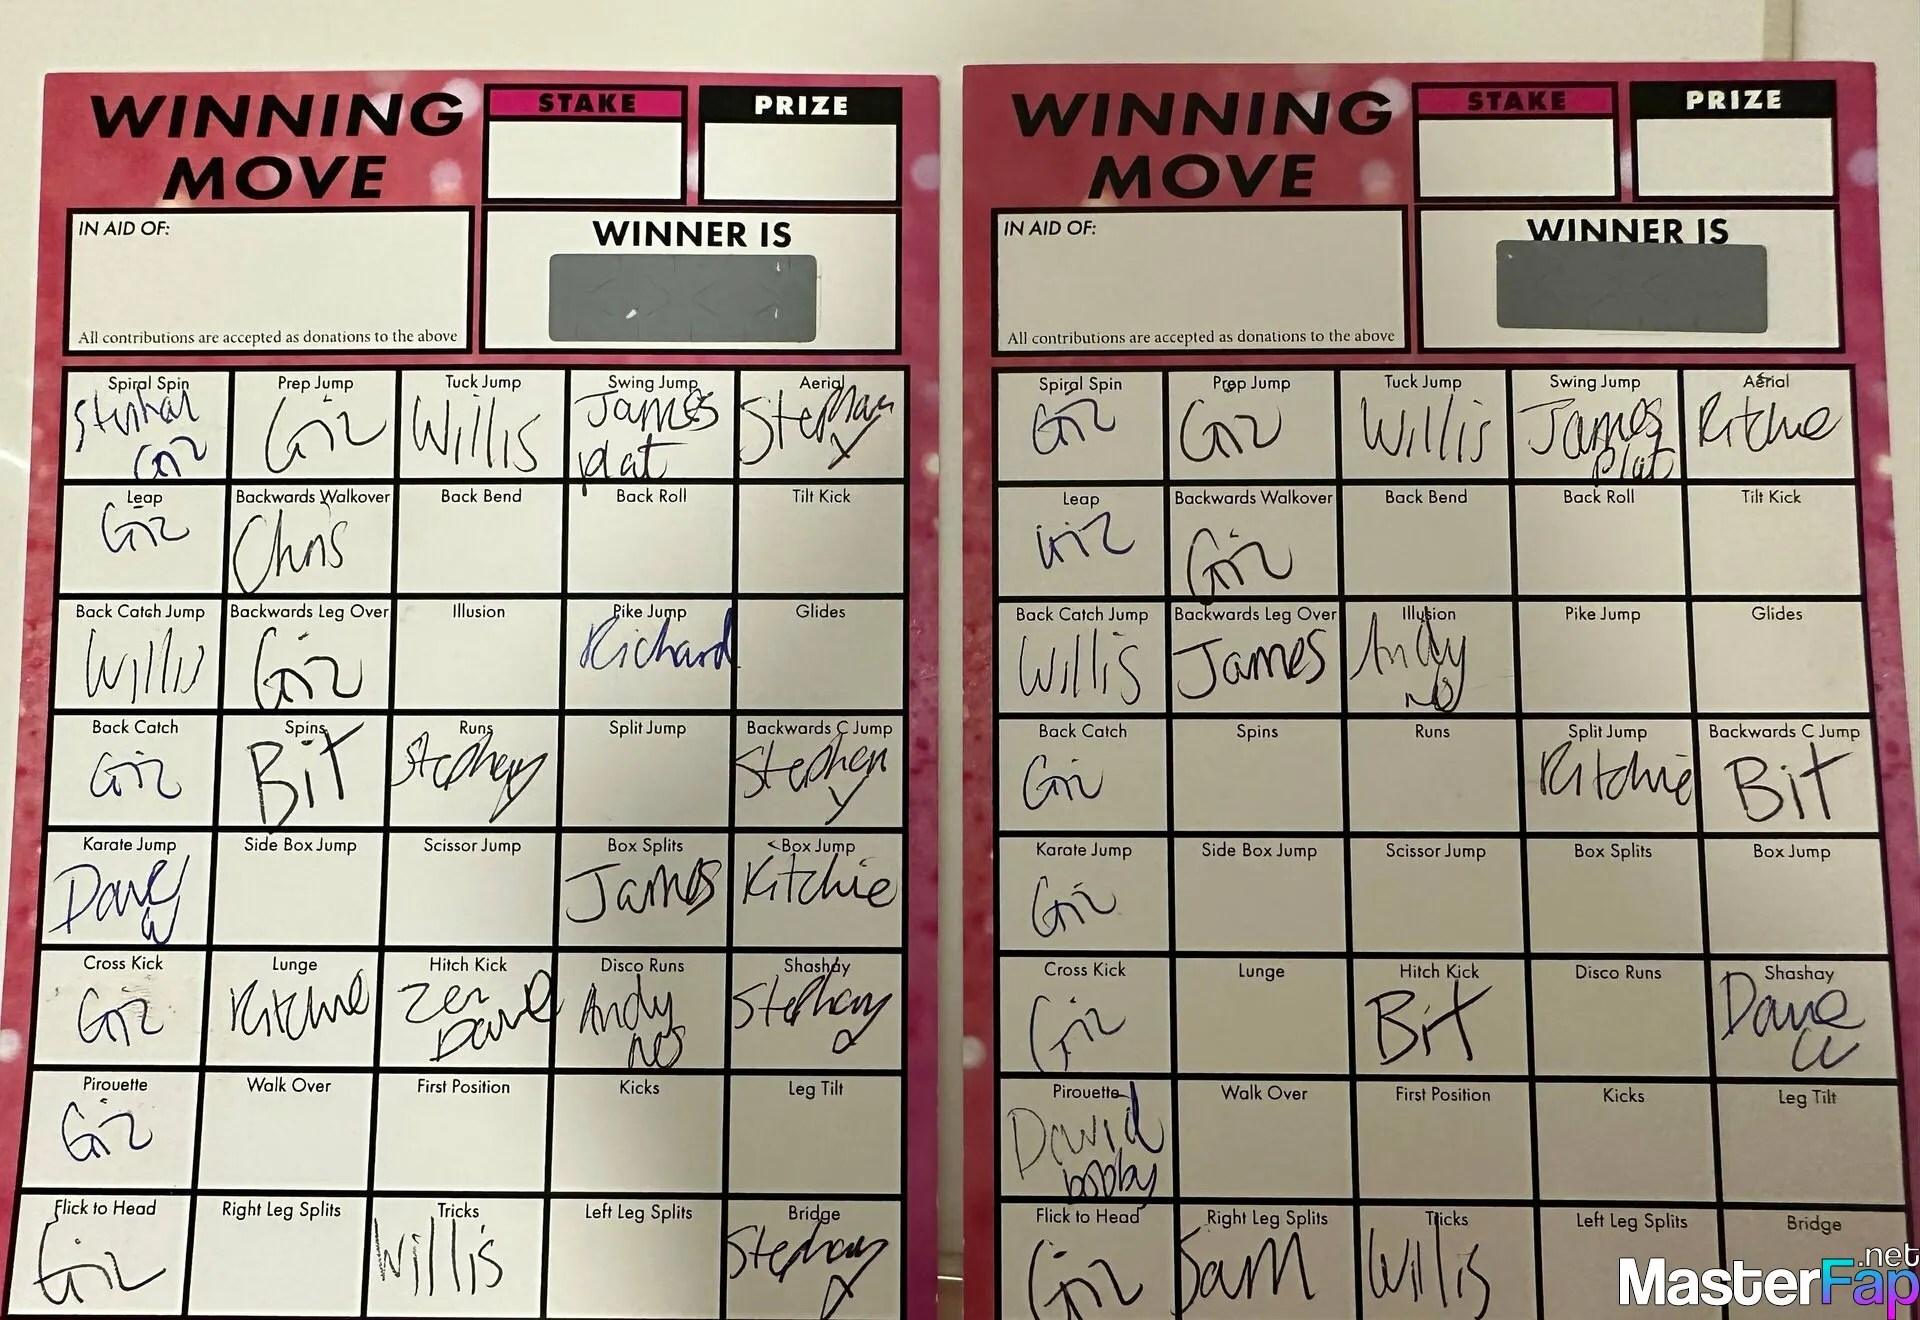 WINNING
MOVE
STAKE
PRIZE
IN AID OF:
All contributions are accepted as donations to the above
WINNER IS
Spiral Spin
Giz
Prep Jump
Giz
Tuck Jump
Willis
Swing Jump
James
plat
Aerial
Leap
Giz
Backwards Walkover
Chris
Back Bend
Back Roll
Tilt Kick
Back Catch Jump
Willis
Backwards Leg Over
Giz
Illusion
Pike Jump
Richard
Glides
Back Catch
Giz
Spins
Bit
Runs
Split Jump
Backwards C Jump
Stephen
y
Karate Jump
Dave
W
Side Box Jump
Scissor Jump
Box Splits
James
Box Jump
Ritchie
Cross Kick
Giz
Lunge
Ritchie
Hitch Kick
Zen
Dave
Disco Runs
Andy
Shashay
Pirouette
Giz
Walk Over
First Position
Kicks
Leg Tilt
Flick to Head
Giz
Right Leg Splits
Tricks
Willis
Left Leg Splits
Bridge
WINNING
MOVE
STAKE
PRIZE
IN AID OF:
All contributions are accepted as donations to the above
WINNER IS
Spiral Spin
Giz
Prep Jump
Giz
Tuck Jump
Willis
Swing Jump
James
plat
Aerial
Ritchie
Leap
Giz
Backwards Walkover
Giz
Back Bend
Back Roll
Tilt Kick
Back Catch Jump
Willis
Backwards Leg Over
James
Illusion
Andy
Pike Jump
Glides
Back Catch
Giz
Spins
Runs
Split Jump
Ritchie
Backwards C Jump
Bit
Karate Jump
Giz
Side Box Jump
Scissor Jump
Box Splits
Box Jump
Cross Kick
Giz
Lunge
Hitch Kick
Bit
Disco Runs
Shashay
Dave
Pirouette
David
bobby
Walk Over
First Position
Kicks
Leg Tilt
Flick to Head
Giz
Right Leg Splits
Sam
Tricks
Willis
Left Leg Splits
Bridge
MasterFap.net